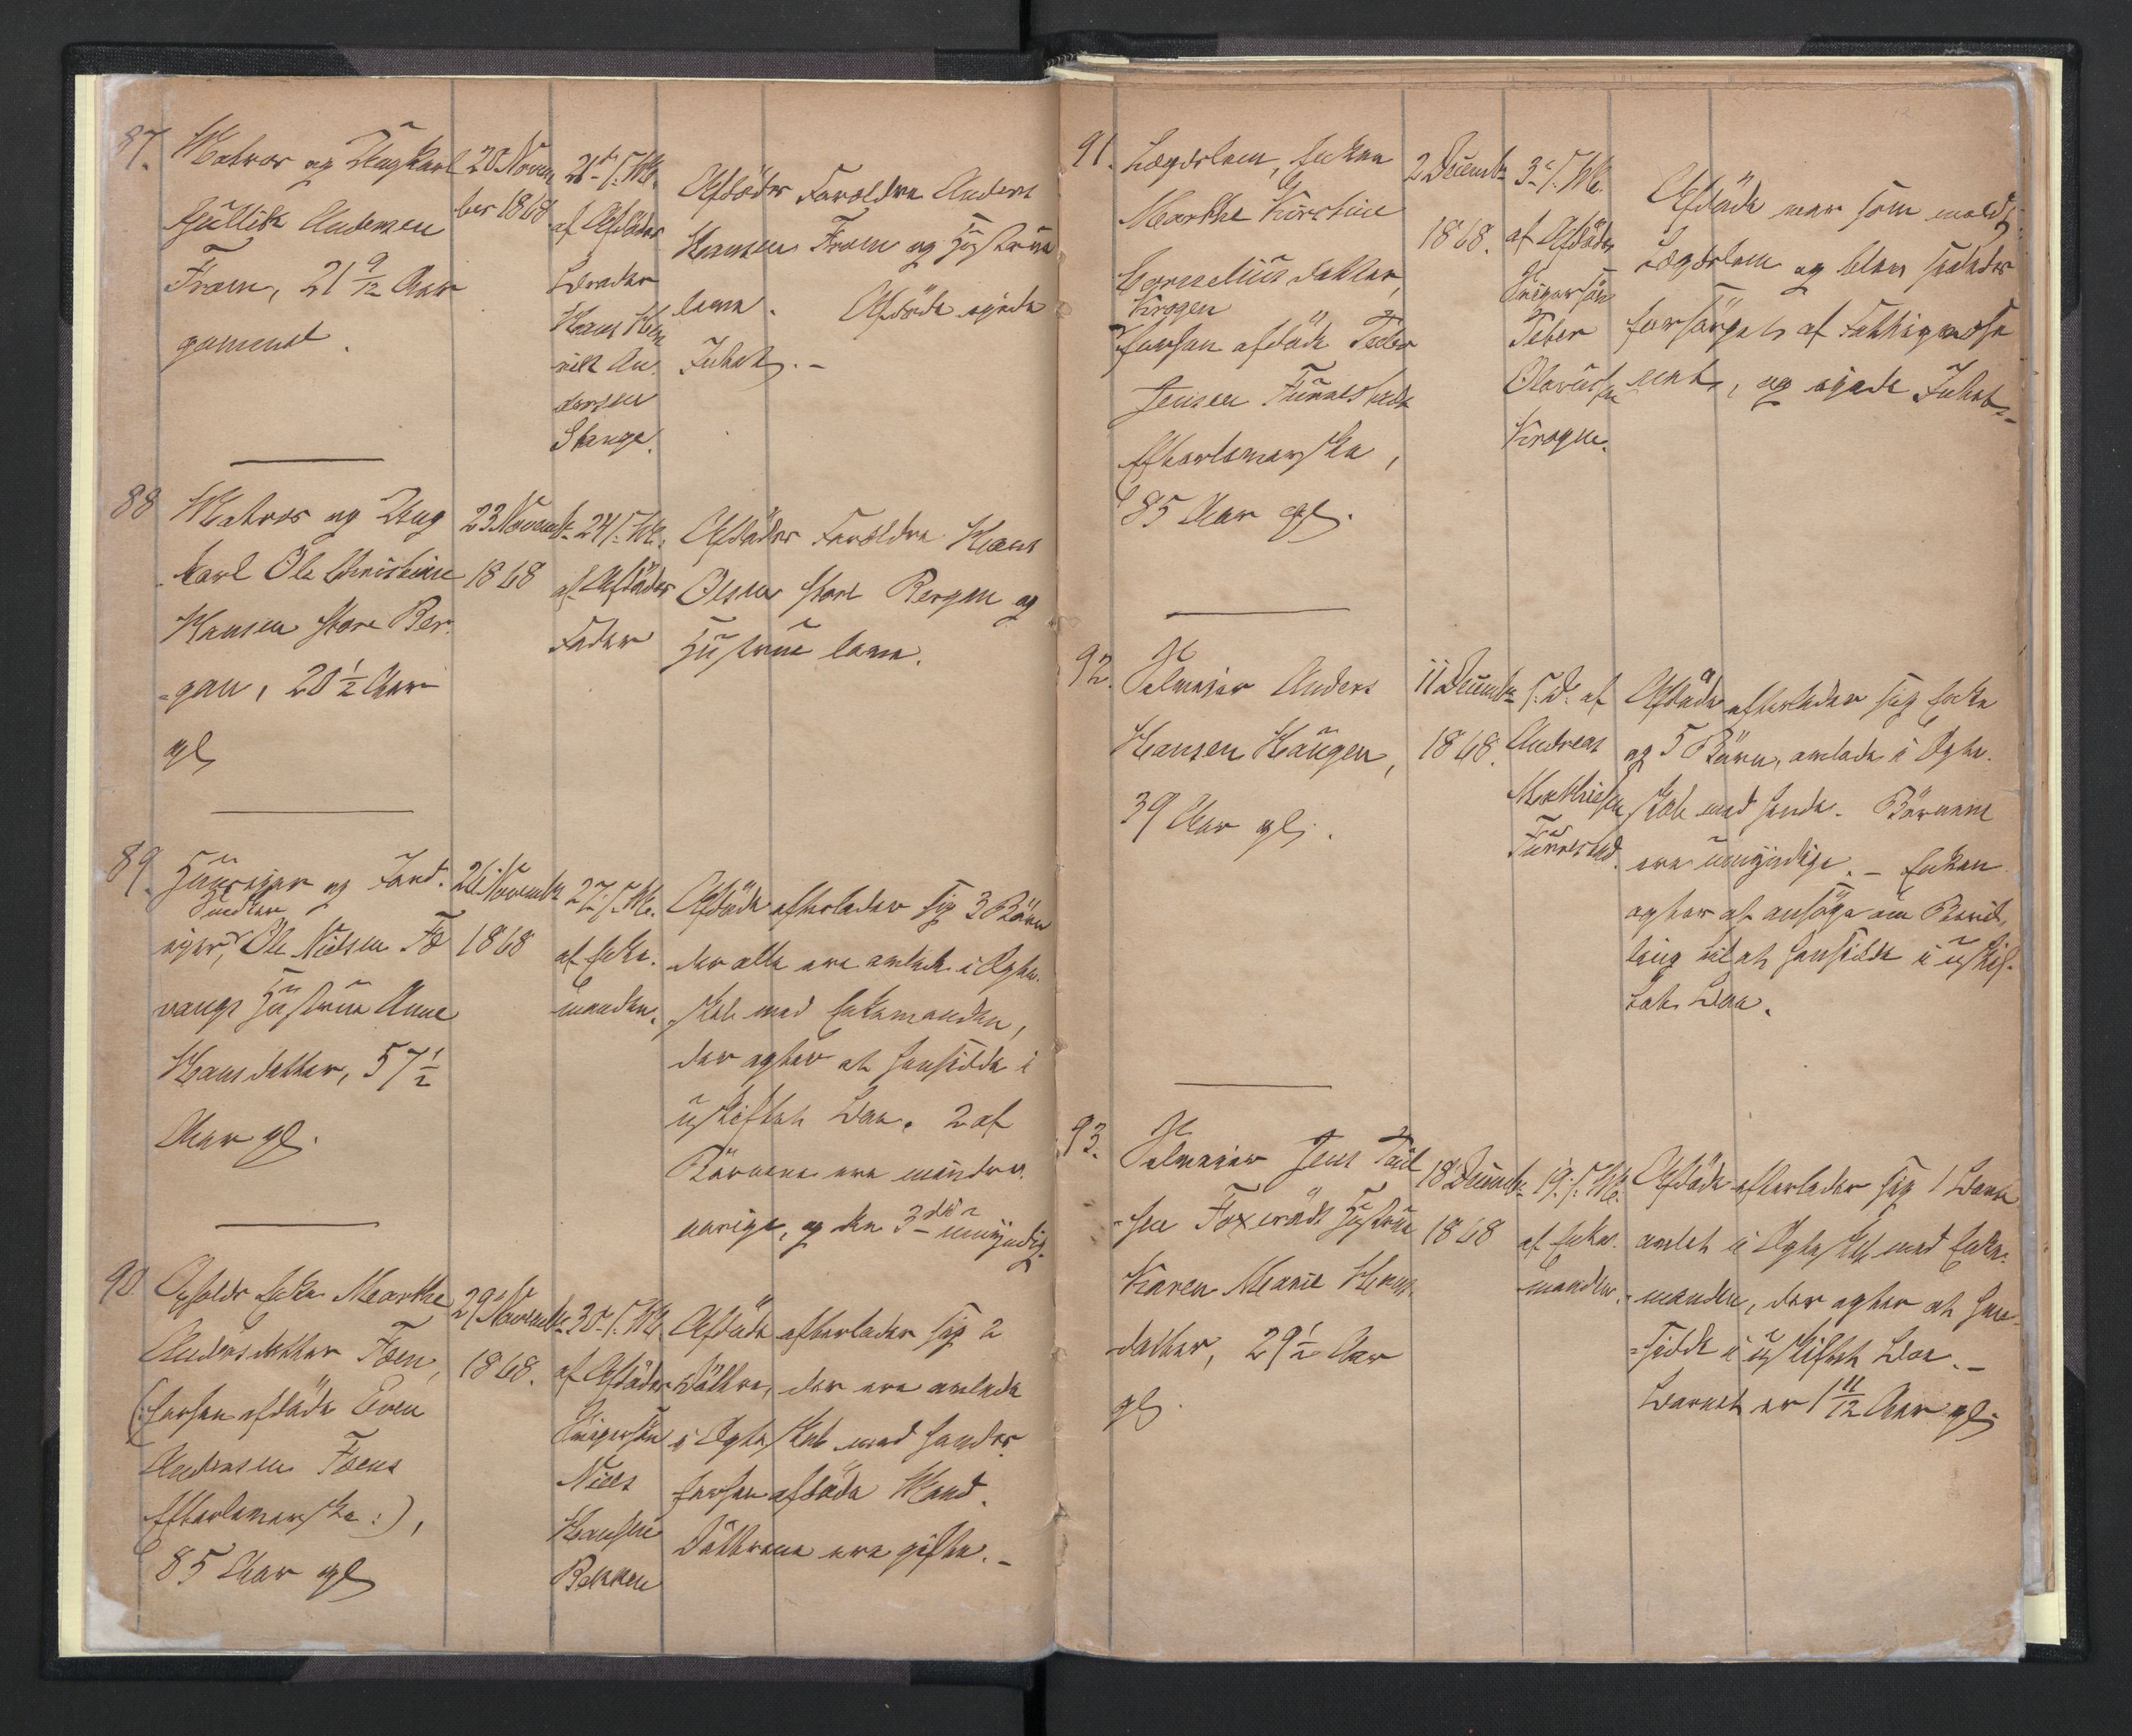 87. Matros og Ungkarl
Gullik Andersen
Fræm, 21 9/12 Aar
gammel.
20 Novem
ber 1868
21. s. M.
af Afdødes
Broder
Hans Hen
rik An-
dersen
Stange.
Afdødes Forældre Anders
Hansen Fræm og Hustrue
leve. Afdøde ejede
Intet. -
88 Matros og Ung
karl Ole Christian
Hansen Store Ber-
gan, 20 1/2 Aar
gl
23 Novembr
1868
24 s. M.
af Afdødes
Fader
Afdødes Forældre Hans
Olsen Store Bergan og
Hustrue leve.
89. Huuseier og Jord-
eier, Ole Nielsen Fe
vangs Hustrue Anne
Hansdatter, 57 1/2
Aar gl.
26 Novembr
1868
27. s. M.
af Enke-
manden.
Afdøde efterlader sig 3 Børn
der alle ere avlede i Ægte-
skab med Enkemanden,
der agter at hensidde i
uskiftet Boe. 2 af
Børnene ere mindre-
aarige, og den 3die umyndig.
90 Enke Marthe
Andersdatter Foen,
(: forhen afdøde Even
Andersen Foens
Efterleverske :),
85 Aar gl
29 Novembr
1868.
30. s. M.
af Afdødes
Svigersøn
Niels
Hansen
Bakken
Afdøde efterlader sig 2
Døttre, der ere avlede
i Ægteskab med hendes
forhen afdøde Mand.
Døttrene ere gifte. -
91. Lægdslem, Enken
Marthe Kirstine
Corneliusdatter
Krogen
forhen afdøde Peder
Jensen Tunnestads
Efterleverske,
85 Aar gl.
2 Decembr
1868.
3. s. M.
af Afdødes
Svigersøn
Peter
Olavus
Krogen.
Afdøde var som meldt
Lægdslem og blev saaledes
forsørget af Fattigvæse
net, og ejede Intet. -
92. Selveier Anders
Hansen Haugen,
39 Aar gl.
11 Decembr
1868.
s. D. af
Andreas
Mathisen
Tunnestad.
Afdøde efterlader sig Enke
og 5 Børn, avlede i Ægte-
skab med hende. Børnene
ere umyndige. - Enken
agter at ansøge om Bevil-
ling til at hensidde i uskif-
tet Boe.
93. Selveier Jens Paul
sen Foxerøds Hustrue
Karen Marie Hans-
datter, 29 1/2 Aar
gl.
18 Decembr
1868
19. s. M.
af Enke-
manden.
Afdøde efterlader sig 1 Barn
avlet i Ægteskab med Enke-
manden, der agter at hen-
sidde i uskiftet Boe. -
Barnet er 1 11/12 Aar gl.